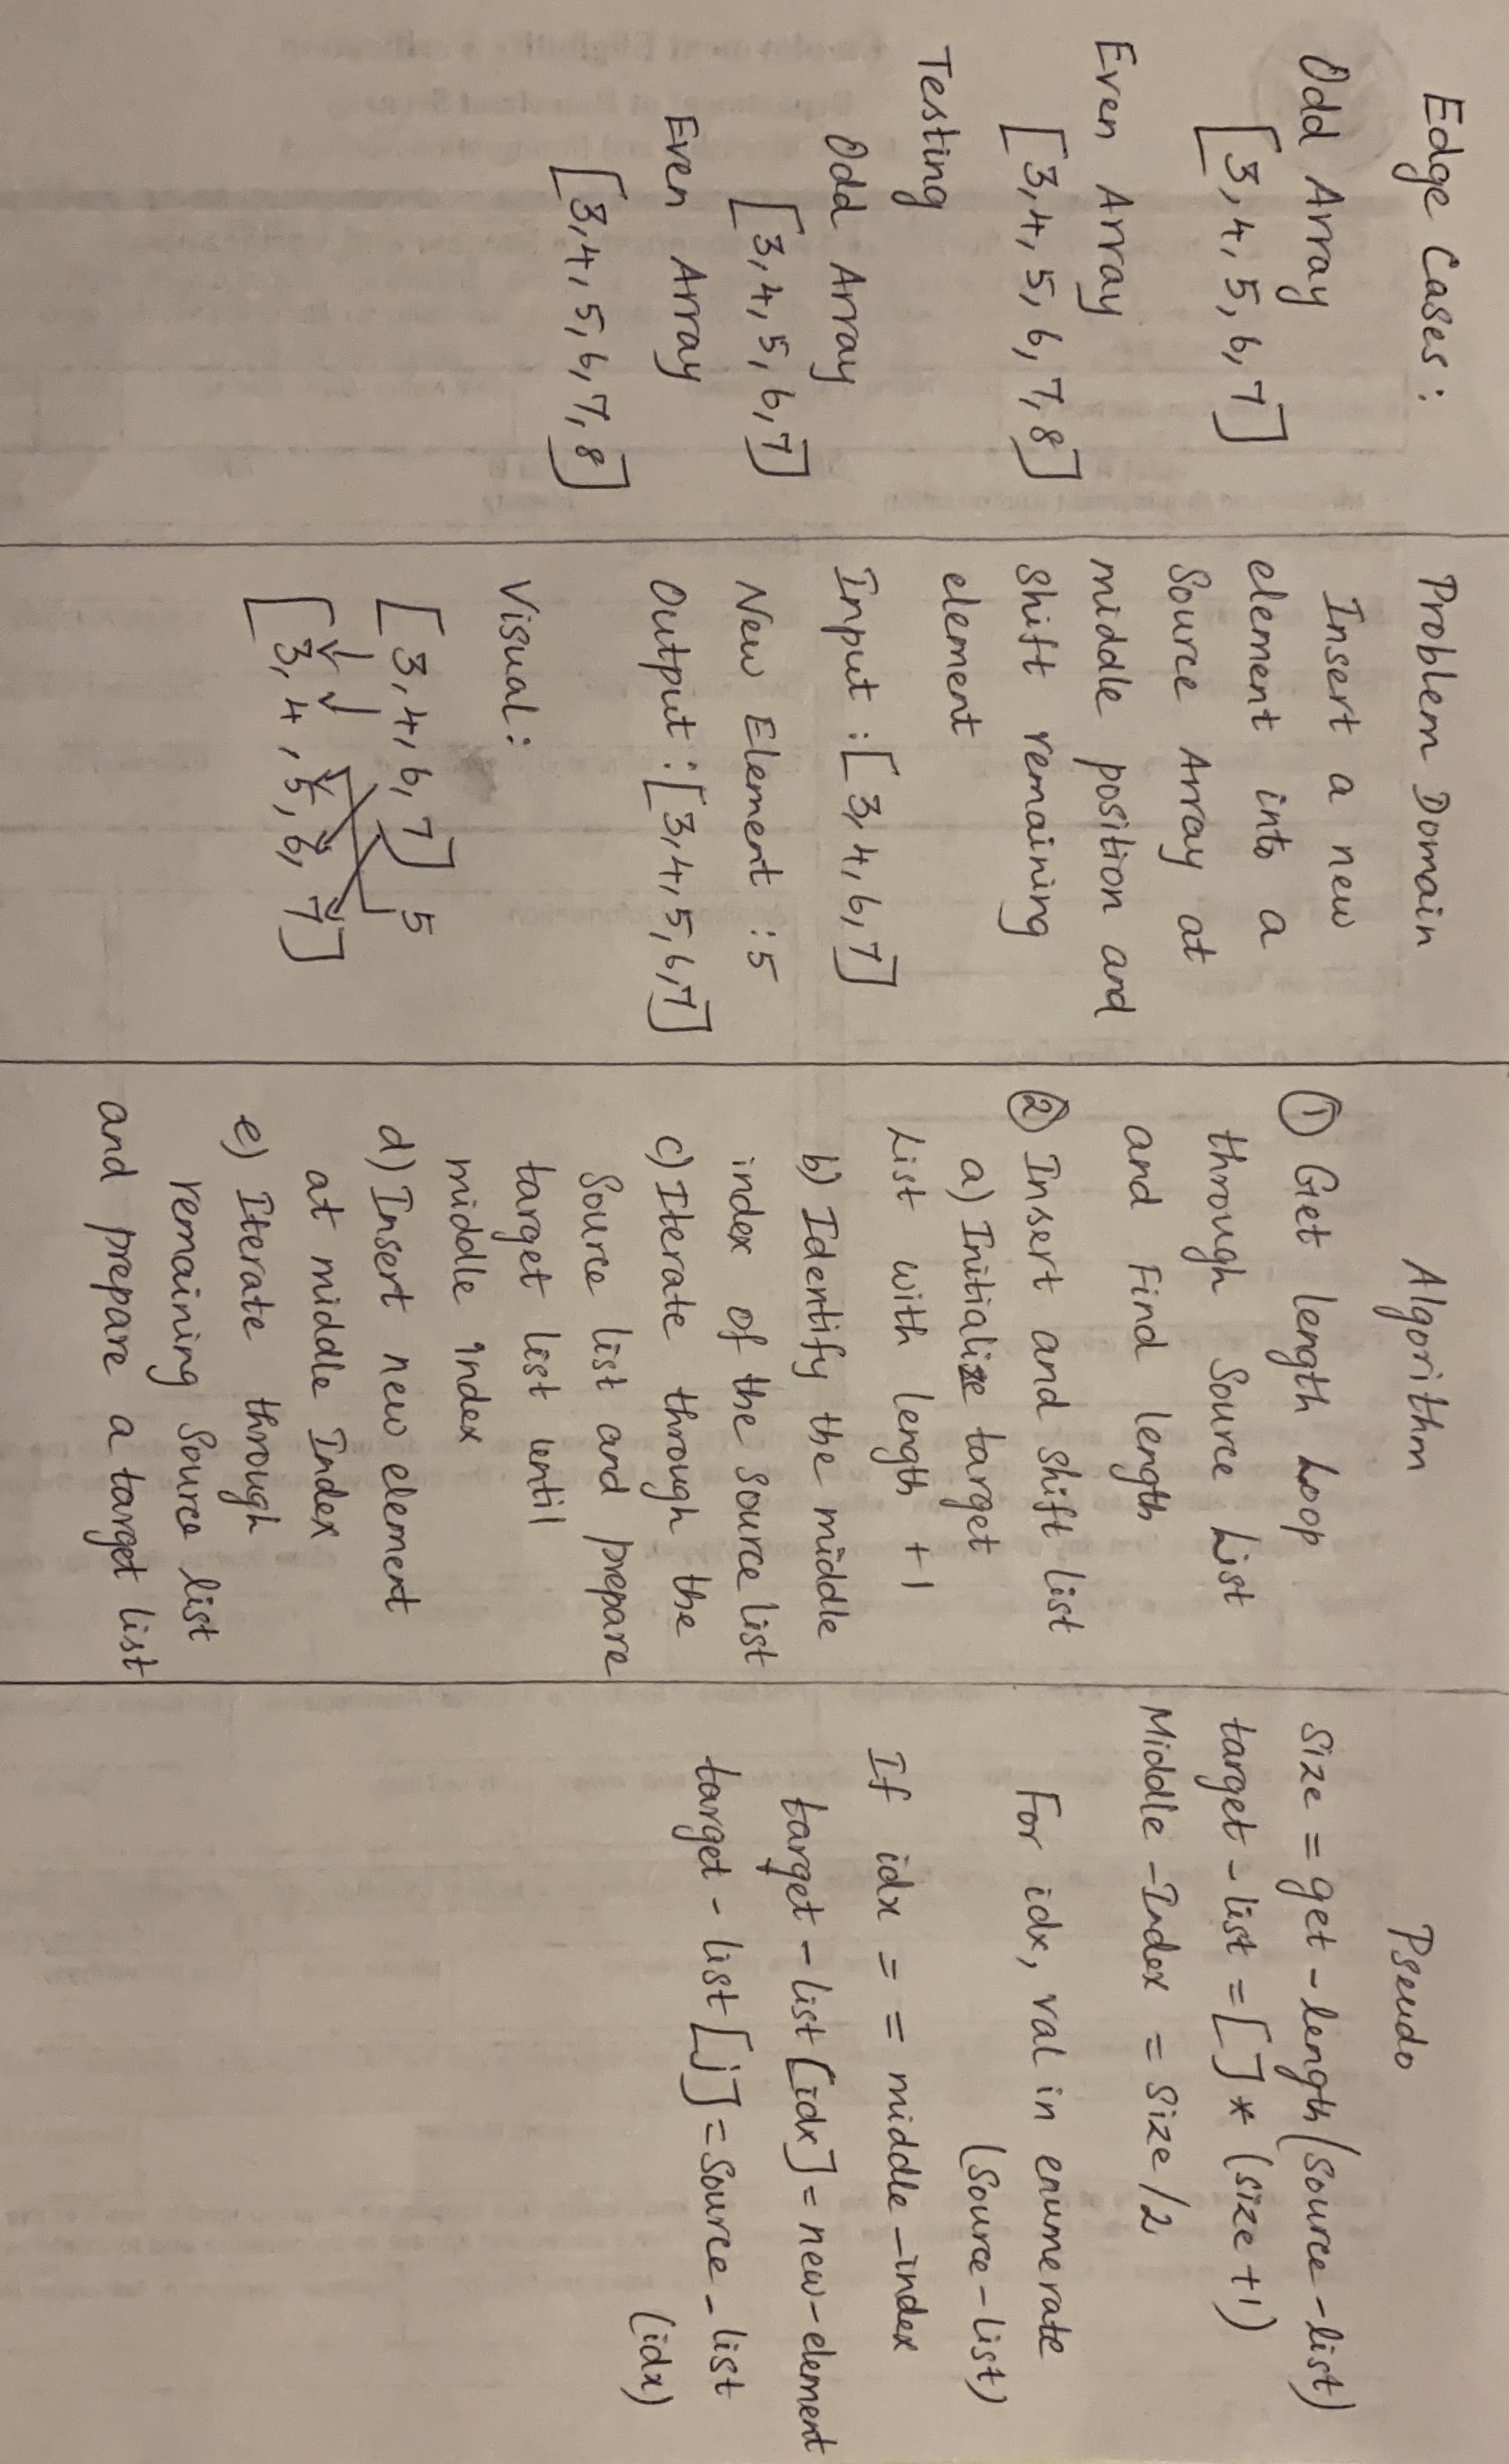 Edge Cases:
Odd Array
[3,4,5,6,7]
Even Array
[3,4,5,6,7,8]
Testing
Odd Array
[3,4,5,6,7]
Even Array
[3,4,5,6,7,8]
Problem Domain
Insert a new
element into a
Source Array at
middle position and
shift remaining
element
Input : [3,4,6,7]
New Element : 5
Output : [3,4,5,6,7]
Visual :
[3,4,6,7] 5
[3,4,5,6,7]
Algorithm
① Get length Loop
through Source List
and Find length
② Insert and shift list
a) Initialize target
List with length +1
b) Identify the middle
index of the source list
c) Iterate through the
Source list and prepare
target list until
middle index
d) Insert new element
at middle Index
e) Iterate through
remaining Source list
and prepare a target list
Pseudo
Size = get-length(source-list)
target-list = [] * (size+1)
Middle-Index = Size/2
For idx, val in enumerate
(Source-List)
If idx == middle-index
target-list[idx] = new-element
target-list[j] = Source-list
(idx)